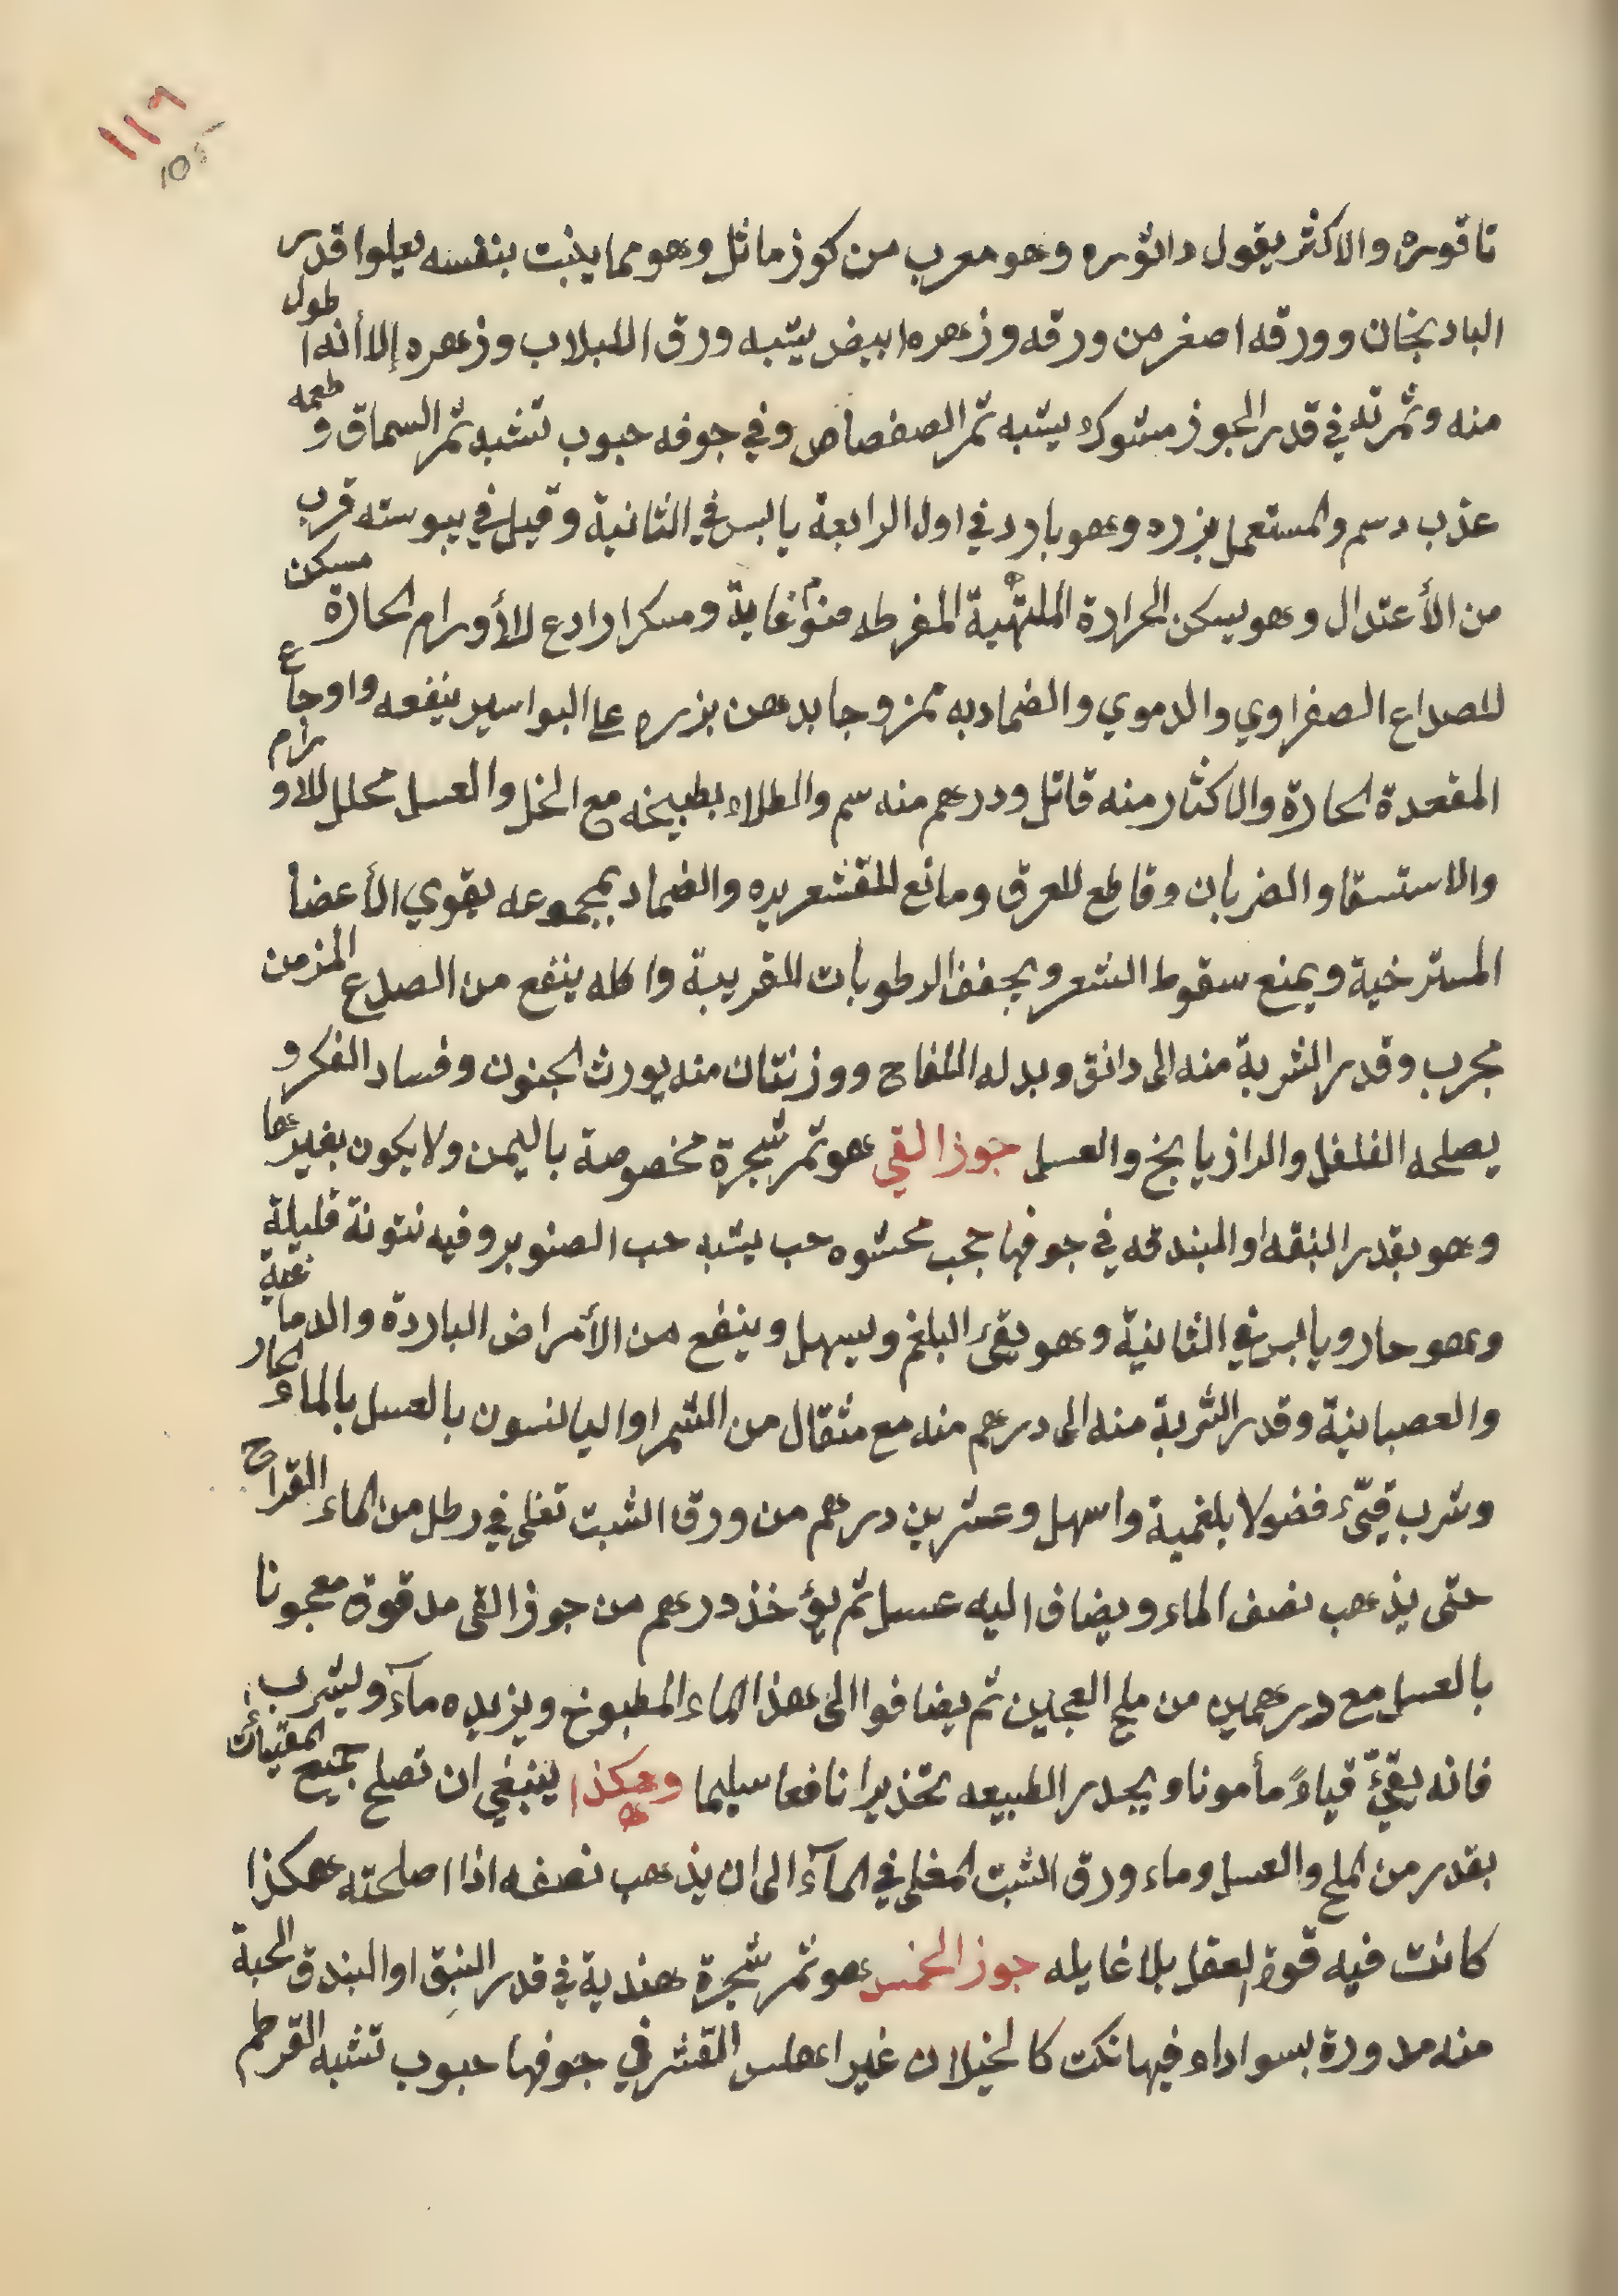 ١١٩
105
تاقوره والاكثر يقول داتوره وهو معرب من كوز ماثل وهو مما ينبت بنفسه يعلوا قدر
البادنجان وورقه اصغر من ورقه وزهره ابيض يشبه ورق اللبلاب وزهره إلا أنه اطول
منه وثمرته في قدر الجوز مشوك يشبه ثمر الصفصاص وفي جوفه حبوب تشبه ثمر السماق وطعمه
عذب دسم والمستعمل بزره وهو بارد في اول الرابعة يابس في الثانية وقيل في يبوسته قرب
من الأعتدال وهو يسكن الحرارة الملتهبة المفرطه منوم غاية ومسكرا رادع للأورام الحارة مسكن
للصداع الصفراوي والدموي والضماد به ممزوجا بدهن بزره على البواسير ينفعه واوجاع
المقعدة الحارة والاكثار منه قاتل ودرهم منه سم والطلاء بطبيخه مع الخل والعسل محلل للاورام
والاستسقا والضربان وقاطع للعرق ومانع للقشعريره والضماد بمجموعه يقوي الأعضا
المسترخية ويمنع سقوط الشعر ويجفف الرطوبات للقريبة واكله ينفع من الصداع المزمن
مجرب وقدر الشربة منه الى دانق وبدله اللفاح ووزنتان منه يورث الجنون وفساد الفكر و
يصلحه الفلفل والرازيانج والعسل جوز القي هو ثمر شجرة مخصوصة باليمن ولا يكون بغيرها
وهو بقدر النبقه او البندقه في جوفها حجب محشوه حب يشبه حب الصنوبر وفيه نتونة قليلة
وهو حار ويابس في الثانية وهو يقيء البلغم ويسهل وينفع من الأمراض الباردة والدماغية
والعصبانية وقدر الشربة منه الى درهم منه مع مثقال من الشمر او اليانسون بالعسل بالماء الحار
وشرب قيّء فضولا بلغمية واسهل وعشرين درهم من ورق الشبت تغلى في رطل من الماء القراح
حتى يذهب نصف الماء ويضاف اليه عسل ثم يؤخذ درهم من جوز القى مدقوة معجونا
بالعسل مع درهمين من ملح العجين ثم يضافوا الى هذا الماء المطبوخ ويزيده مآء ويشرب
فانه يقيّء قياءً مأمونا ويحدر الطبيعه تحذيرا نافعا سليما وهكذا ينبغي ان تصلح جميع المقيئات
بقدر من الملح والعسل وماء ورق الشبت المغلى في المآء الى ان يذهب نصفه اذا اصلحته هكذا
كانت فيه قوة لعقل بلا غايله جوز الخمس هو ثمر شجرة هندية في قدر النبق او البندق الحبة
منه مدورة بسواداء فيها نكت كالخيلان غير املس القشر في جوفها حبوب تشبه القرطم